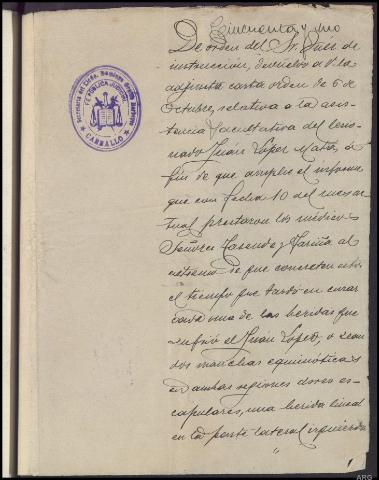 Cincuenta y uno
De orden del Sr. Juez de
instrucción, devuelvo a V. la
adjunta carta orden de 6 de
Octubre, relativa a la asis-
tencia facultativa del lesio-
nado Juan Lopez Mata a
fin de que amplie el informe
que con fecha 10 del mes ac-
tual prestaron los médicos
Señores y Fariña al
extremo de que concreten
el tiempo que tardó en curar
cada una de las heridas que
sufrió el Juan Lopez, o sean
dos manchas equimóticas
en ambas regiones dorso es-
capulares, una herida lineal
en la parte lateral izquierda
Secretaría del Licdo. Domingo
FE PUBLICA JUDICIAL
CARBALLO
ARG